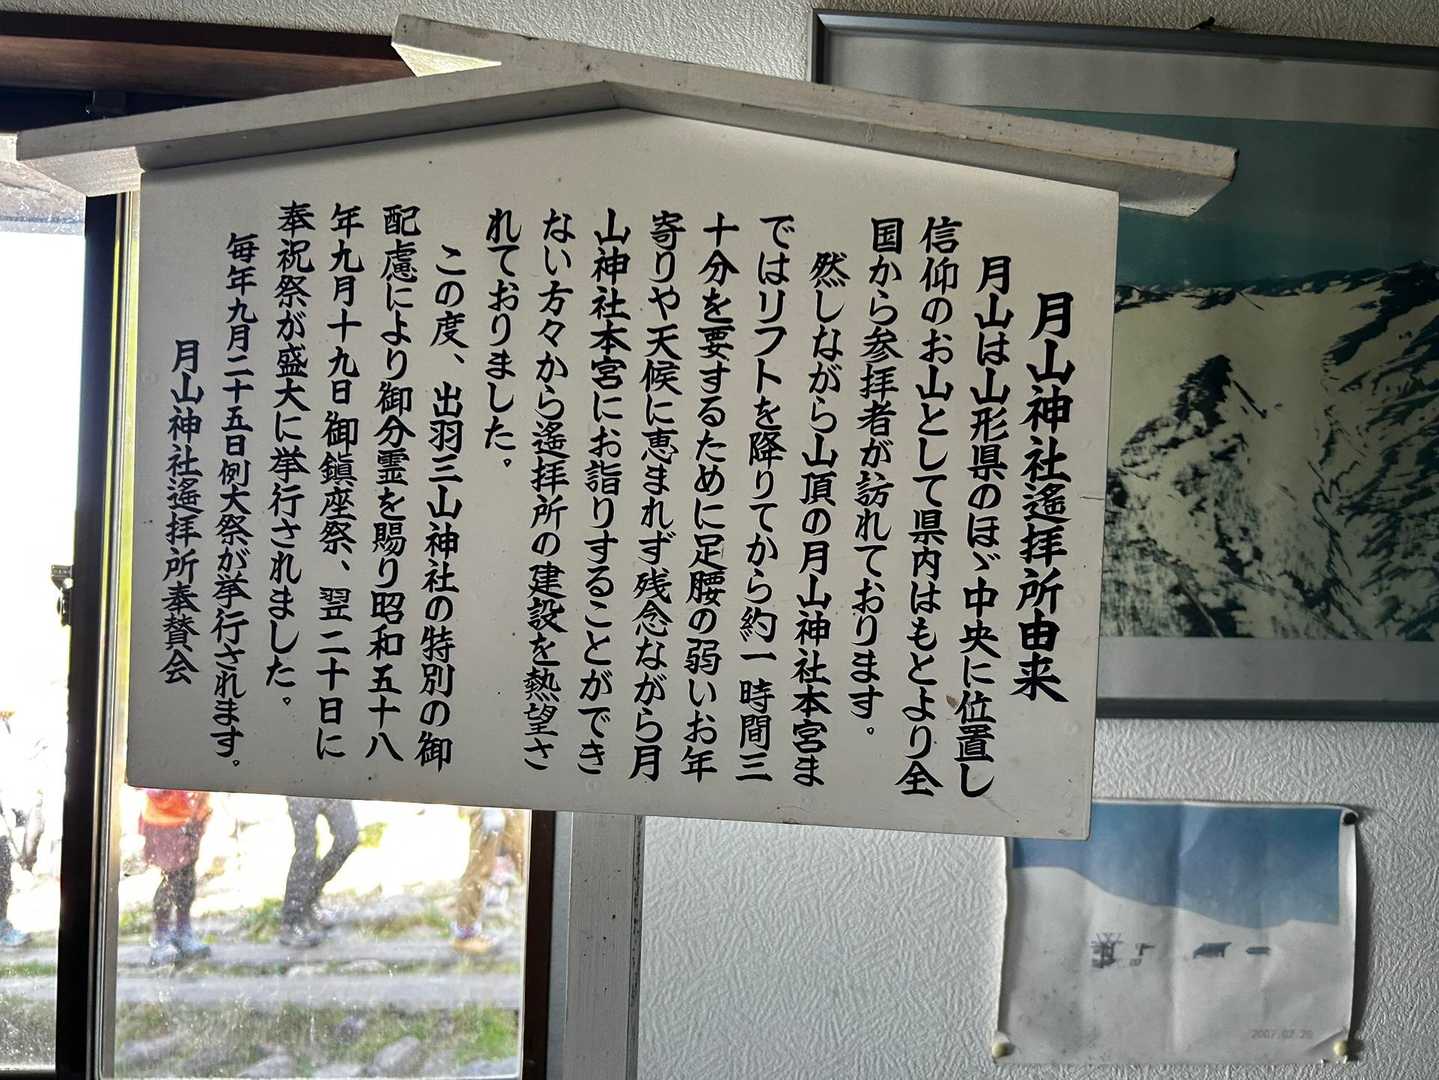 月山神社遙拝所由来
月山は山形県のほゞ中央に位置し
信仰のお山として県内はもとより全
国から参拝者が訪れております。
然しながら山頂の月山神社本宮ま
ではリフトを降りてから約一時間三
十分を要するために足腰の弱いお年
寄りや天候に恵まれず残念ながら月
山神社本宮にお詣りすることができ
ない方々から遙拝所の建設を熱望さ
れておりました。
この度、出羽三山神社の特別の御
配慮により御分霊を賜り昭和五十八
年九月十九日御鎮座祭、翌二十日に
奉祝祭が盛大に挙行されました。
毎年九月二十五日例大祭が挙行されます。
月山神社遙拝所奉賛会
2007.02.20